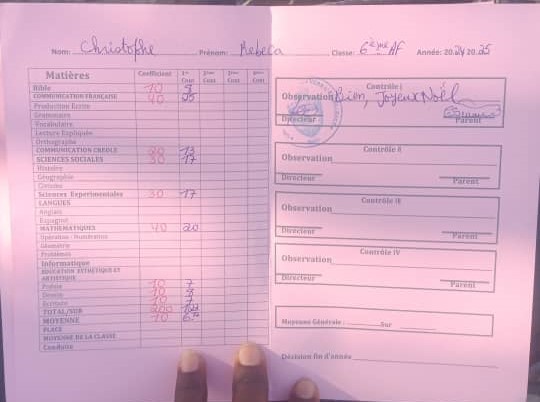 Nom: Christophe Prénom: Rebeca Classe: 6ème AF Année: 2024 2025
Matières Coefficient 1er Cont 2ème Cont 3ème Cont 4ème Cont
Bible 10 8
COMMUNICATION FRANÇAISE 40 25
Production Ecrite
Grammaire
Vocabulaire
Lecture Expliquée
Orthographe
COMMUNICATION CREOLE 20 13
SCIENCES SOCIALES 30 17
Histoire
Géographie
Civisme
Sciences Experimentales 30 17
LANGUES
Anglais
Espagnol
MATHEMATIQUES 40 20
Opération / Numération
Géométrie
Problèmes
Informatique
EDUCATION ESTHÉTIQUE ET ARTISTIQUE
Poésie 10 7
Dessin 10
Ecriture 10 7
TOTAL/SUR 200
MOYENNE 10
PLACE
MOYENNE DE LA CLASSE
Conduite
Contrôle I
Observation Bien, Joyeux Noël
Directeur Parent
Contrôle II
Observation
Directeur Parent
Contrôle III
Observation
Directeur Parent
Contrôle IV
Observation
Directeur Parent
Moyenne Générale : Sur
Décision fin d'année